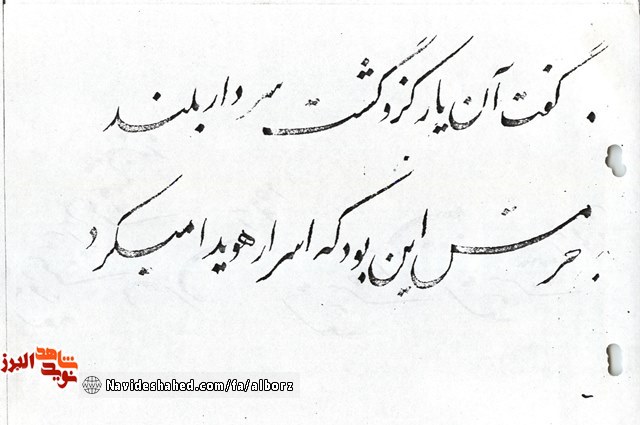 گفت آن یار کزو گشت سردار بلند
جرمش این بود که اسرار هویدا میکرد
نوید شاهد البرز
Navideshahed.com/fa/alborz